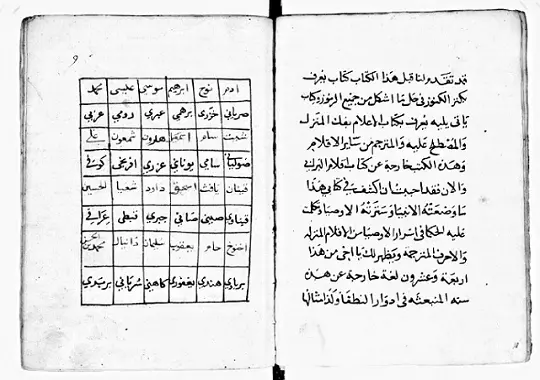 قد تقدم لنا قبل هذا الكتاب كتاب يعرف
بكنز الكنوز في حل ما اشكل من جميع الرموز وكتاب
ياتي يليه يعرف بكتاب الاعلام بفك المنزله
والمصطلح عليه والمترجم من ساير الاقلام
وهذه الكتب خارجة عن كتاب اقلام البرابي
والان فقد احببنا ان اكشف في كتابي هذا
ما وضعته الانبيا وسترته الاوصيا وتكلمت
عليه الحكما في اسرار الاوصيا من الاقلام المنزله
والاحرف المترجمة ويظهر لك يا اخي من هذا
اربعة وعشرون لغة خارجة عن هذه
سته المنبعثه في ادوار النطقا
٩
ادم نوح ابرهيم موسى عيسى محمد
سرياني خزري برهمي عبري رومي عربي
شيث سام اسمعيل هارون شمعون علي
سامي يوناني عزري افرنجي كوفي
قينان يافث اسحق داود شعيا الحسين
قيناري صيني صابي جبري قبطي عراقي
اخنوخ حام يعقوب سليمان دانيال
برباوي هندي يعقوبي كاهني